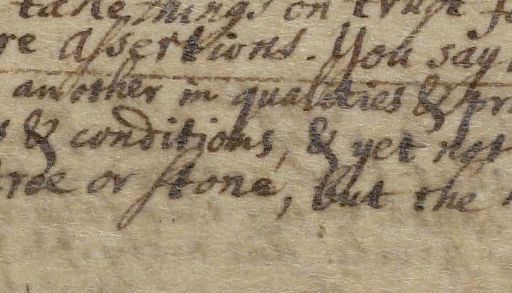 take things on trust
re assertions. You say
another in qualities & pr
s & conditions, & yet not
tree or stone, but the